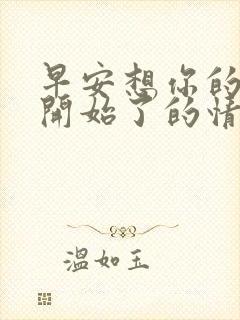 早安想你的
開始了的情
溫如玉